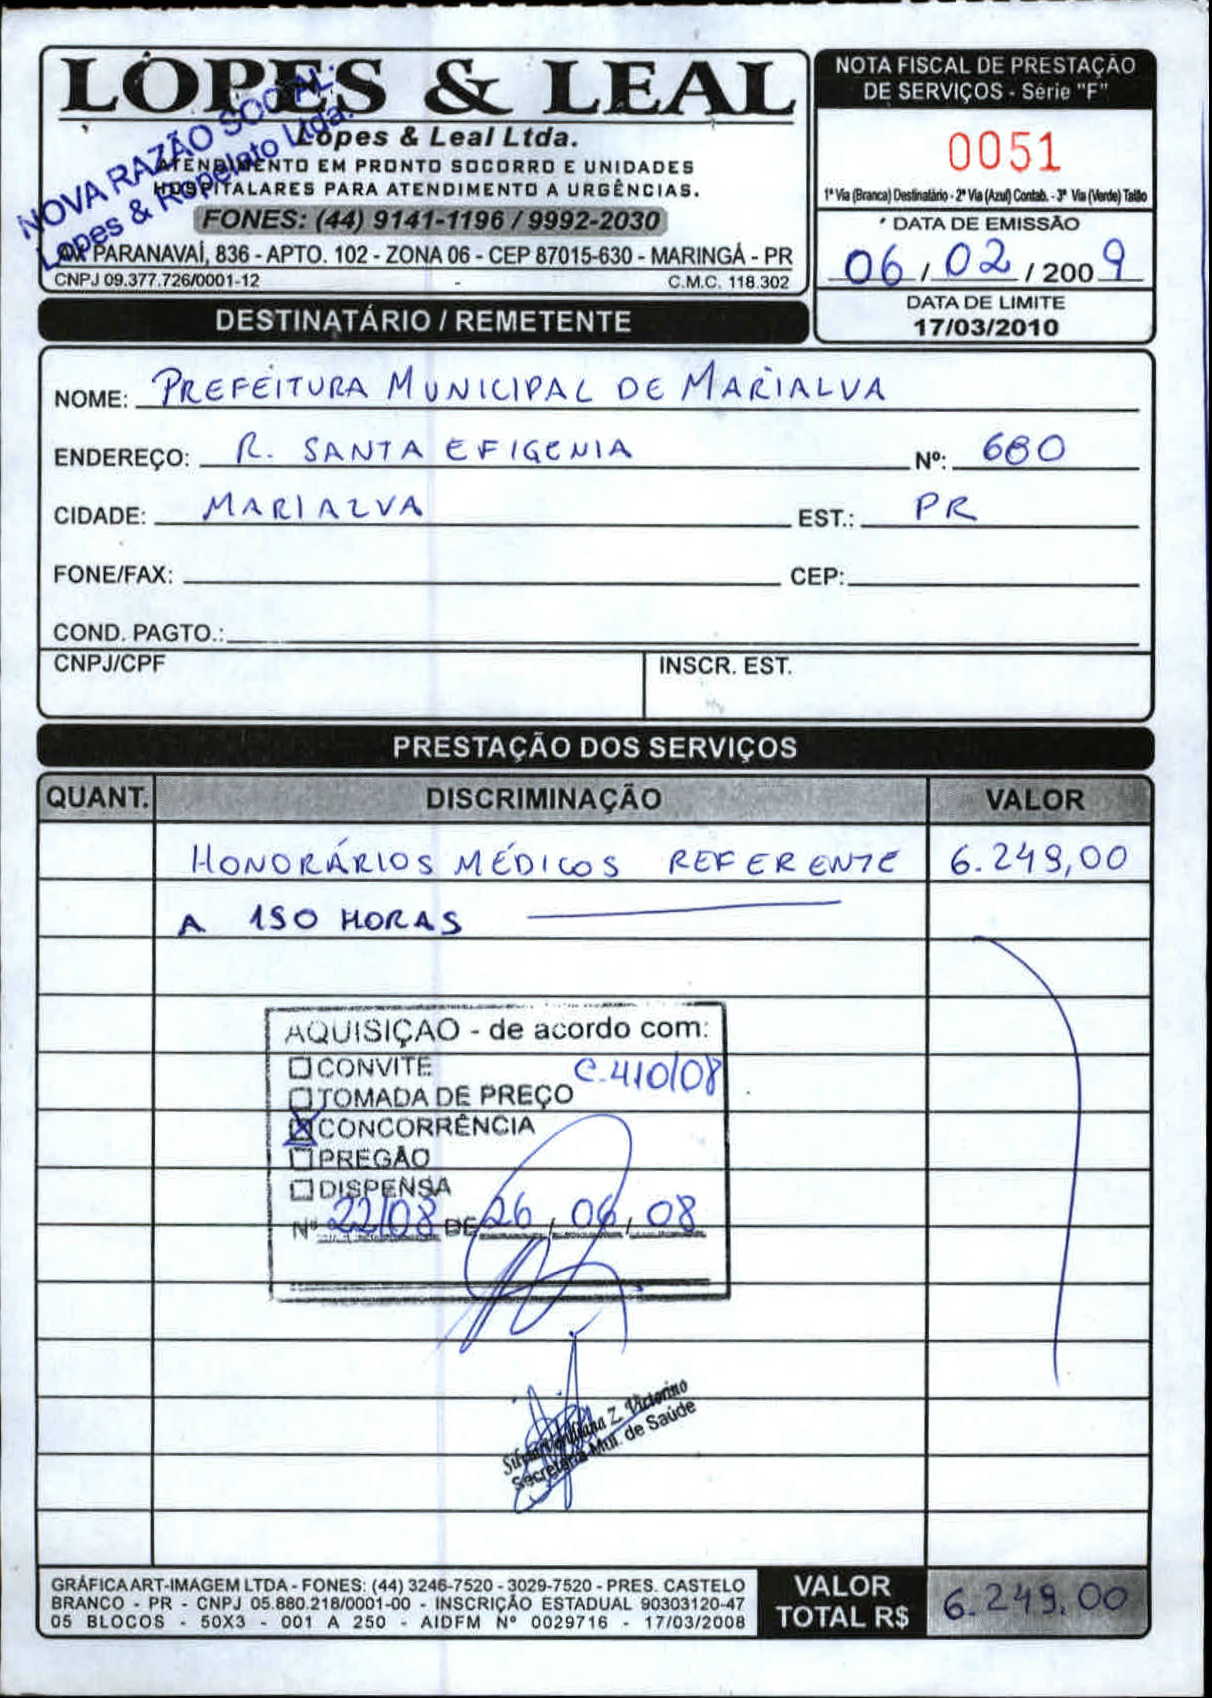 LOPES & LEAL
Lopes & Leal Ltda.
ATENDIMENTO EM PRONTO SOCORRO E UNIDADES
HOSPITALARES PARA ATENDIMENTO A URGÊNCIAS.
FONES: (44) 9141-1196 / 9992-2030
AV. PARANAVAÍ, 836 - APTO. 102 - ZONA 06 - CEP 87015-630 - MARINGÁ - PR
CNPJ 09.377.726/0001-12 C.M.C. 118.302
NOVA RAZÃO SOCIAL:
Lopes & Ropelato Ltda.
NOTA FISCAL DE PRESTAÇÃO
DE SERVIÇOS - Série "F"
0051
1ª Via (Branca) Destinatário - 2ª Via (Azul) Contab. - 3ª Via (Verde) Talão
DATA DE EMISSÃO
06 / 02 / 2009
DATA DE LIMITE
17/03/2010
DESTINATÁRIO / REMETENTE
NOME: PREFEITURA MUNICIPAL DE MARIALVA
ENDEREÇO: R. SANTA EFIGENIA Nº: 680
CIDADE: MARIALVA EST.: PR
FONE/FAX: CEP:
COND. PAGTO.:
CNPJ/CPF INSCR. EST.
PRESTAÇÃO DOS SERVIÇOS
QUANT. DISCRIMINAÇÃO VALOR
HONORÁRIOS MÉDICOS REFERENTE 6.249,00
A 150 HORAS
AQUISIÇAO - de acordo com:
CONVITE C.410/08
TOMADA DE PREÇO
X CONCORRÊNCIA
PREGÃO
DISPENSA
Nº 22/08 DE 26 / 06 / 08
Z. Victorino
Secretária Mun. de Saúde
GRÁFICA ART-IMAGEM LTDA - FONES: (44) 3246-7520 - 3029-7520 - PRES. CASTELO
BRANCO - PR - CNPJ 05.880.218/0001-00 - INSCRIÇÃO ESTADUAL 90303120-47
05 BLOCOS - 50X3 - 001 A 250 - AIDFM Nº 0029716 - 17/03/2008
VALOR
TOTAL R$ 6.249,00